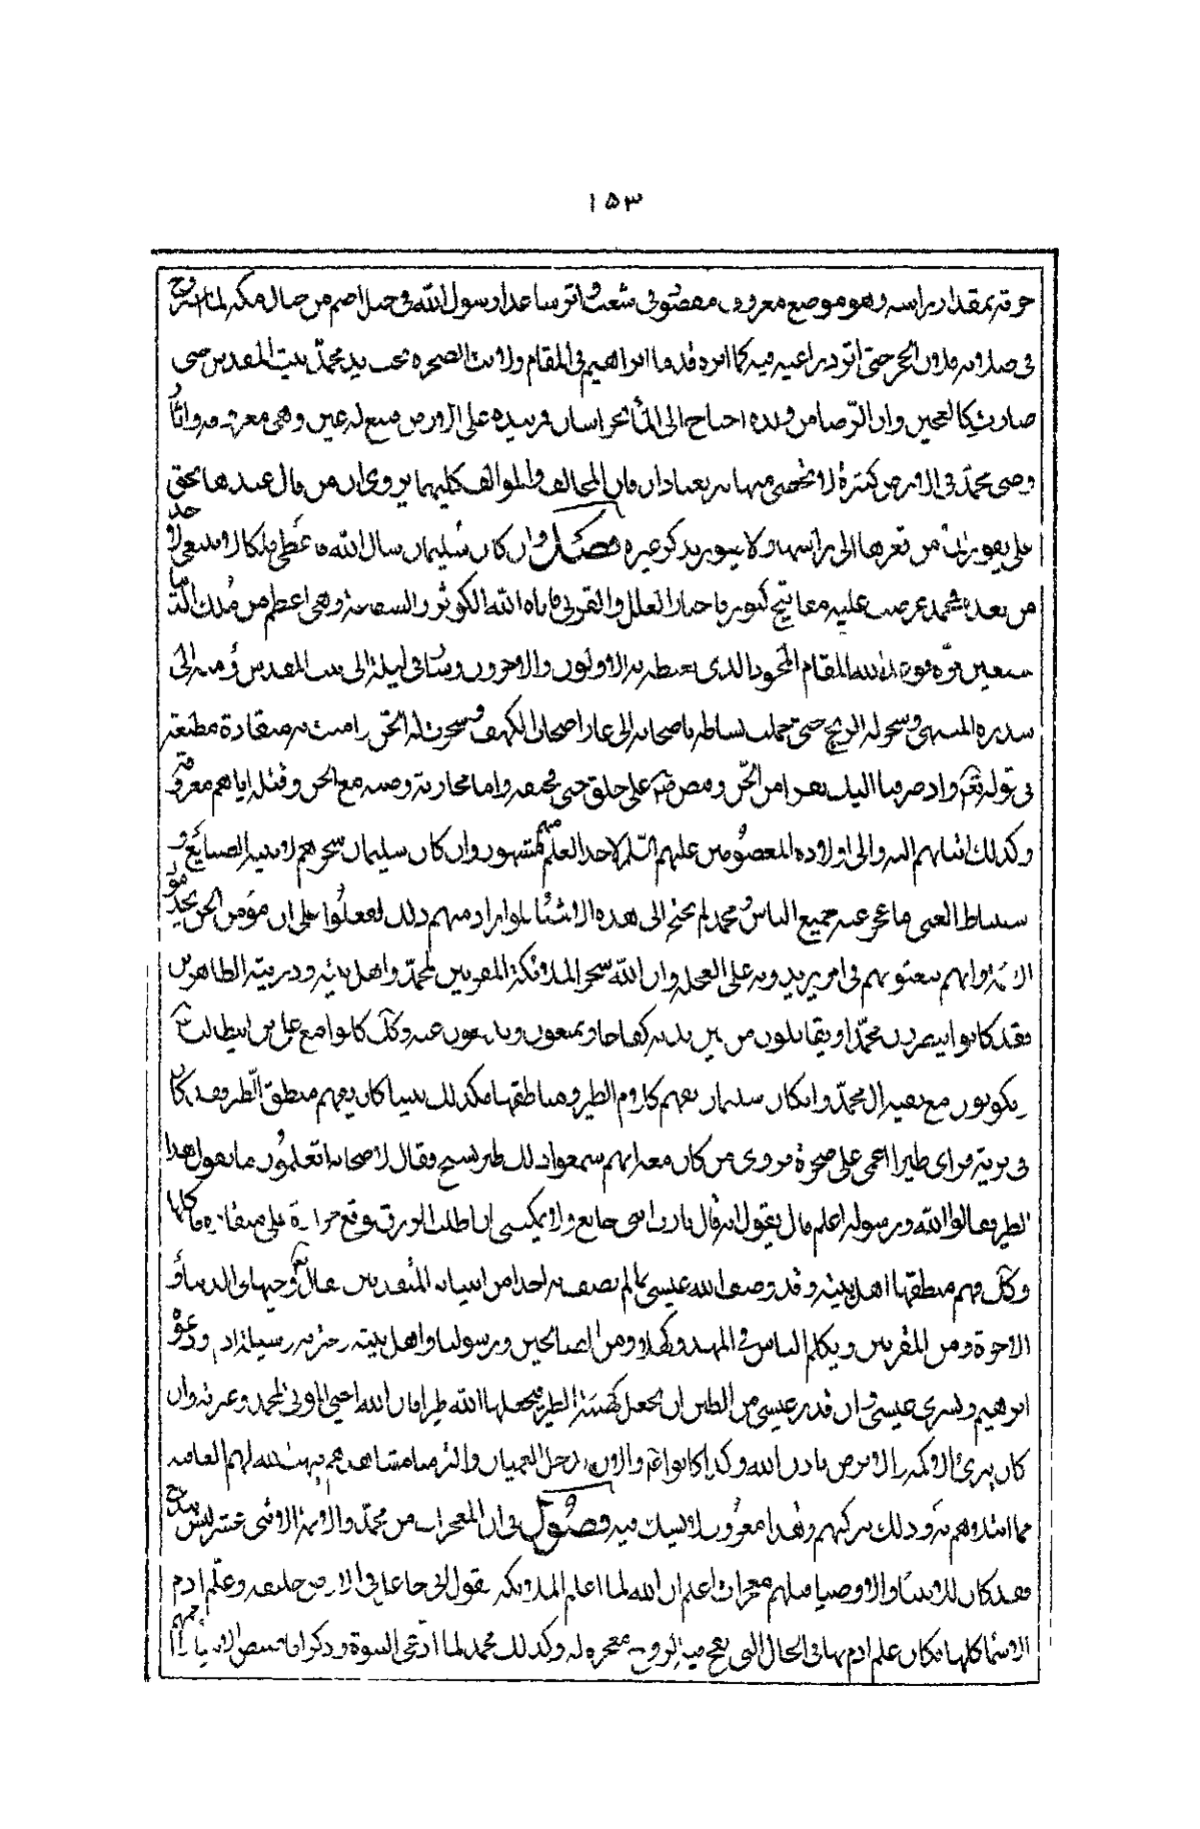 ١٥٣
بمقدار راسه وهو موضع معروف مقصود في شعب واثر ساعدا رسول الله في جبل اصم من جبال مكة لما استروح
في صلاته فلان الحجر حتى اثر ذراعيه فيه كما اثره قدما ابراهيم في المقام ولانت الصخرة تحت يد محمد ببيت المقدس حتى
صارت كالعجين وان الرضا من ولده احتاج الى الماء بخراسان بيده على الارض فنبع له عين وهي معروفة واثار
وصى محمد في الارض كثيرة لا تحصى منها بعبادان فان المخالف والموالف كليهما يروى ان من قال عندها بحق
على يفور الماء من قعرها الى راسها ولا يفور بذكر غيره فصل وان كان سليمان سال الله فاعطى ملكا لا ينبغي لاحد
من بعده فمحمد عرضت عليه مفاتيح كنوز فاتاه الله الكوثر والشفاعة وهي اعظم من ملك الدنيا
سبعين مرة فوعد الله المقام المحمود الذي يغبطه به الاولون والاخرون وسار في ليلة الى بيت المقدس ومنه الى
سدرة المنتهى وسخر له الريح حتى حملت بساطه باصحابه الى غار اصحاب الكهف وسخرت له الجن وامنت به منقادة مطيعة
في قوله تع واذ صرفنا اليك نفرا من الجن على واما محاربة وصيه مع الجن وقتله اياهم معروفة
وكذلك اتيانهم اليه والى اولاده المعصومين عليهم السلم لاخذ العلم منهم مشهور وان كان سليمان سخرهم للابنية والصنايع و
ما عجز عنه جميع الناس ومحمد لم يحتج الى هذه الاشياء فلو اراد منهم ذلك لفعلوا على ان مؤمن الجن يخدمون
الائمة وانهم يبعثونهم في امر يريدونه على العجلة وان الله سخر الملائكة المقربين لمحمد واهل بيته وذريته الطاهرين
فقد كانوا ينصرون محمدا ويقاتلون من بين يديه كفاحا ويمنعون ويدفعون عنه وكك كانوا مع على بن ابيطالب
يكونون مع بقية ال محمد وان كان سليمان يفهم كلام الطير ومنطقها فكذلك نبينا كان يفهم منطق الطير فقد كان
في برية فراى طيرا اعمى على صخرة فروى من كان معه انهم سمعوا ذلك الطير يسبح فقال لاصحابه اتعلمون ما يقول هذا
الطير قالوا الله ورسوله اعلم قال يقول انه قال يا رب انى جايع ولا يمكننى ان اطلب الرزق فوقع جرادة على منقاره فاكلها
وكك فهم منطقها اهل بيته وقد وصف الله عيسى بما لم يصف به احدا من انبيائه المتقدمين فقال وجيها في الدنيا و
الاخرة ومن المقربين ويكلم الناس في المهد وكهلا ومن الصالحين ورسولنا واهل بيته ودعوة
ابرهيم وبشرى عيسى وان قدر عيسى من الطين ان يجعل كهيئة الطير فيجعلها الله طيرا فان الله احيى الموتى لمحمد وعترته وان
كان يبرئ الاكمه والابرص باذن الله وكذا كانوا ع والان يدخل العميان والزمنا مشاهدهم فيهب الله لهم العافية
مما ابتلاهم به وذلك ببركتهم وهذا معروف لا يشك فيه فصول في ان المعجزات من محمد والائمة الاثنى عشر ليس ببدع
فقد كان للانبياء والاوصياء قبلهم معجزات اعلم ان الله لما اعلم الملائكة بقوله انى جاعل في الارض خليفة وعلم ادم
الاسماء كلها فكان علم ادم بها في الحال التى نفخ فيه الروح معجزة له وكذلك محمد لما ادعى النبوة وذكر اقاصيص الانبياء